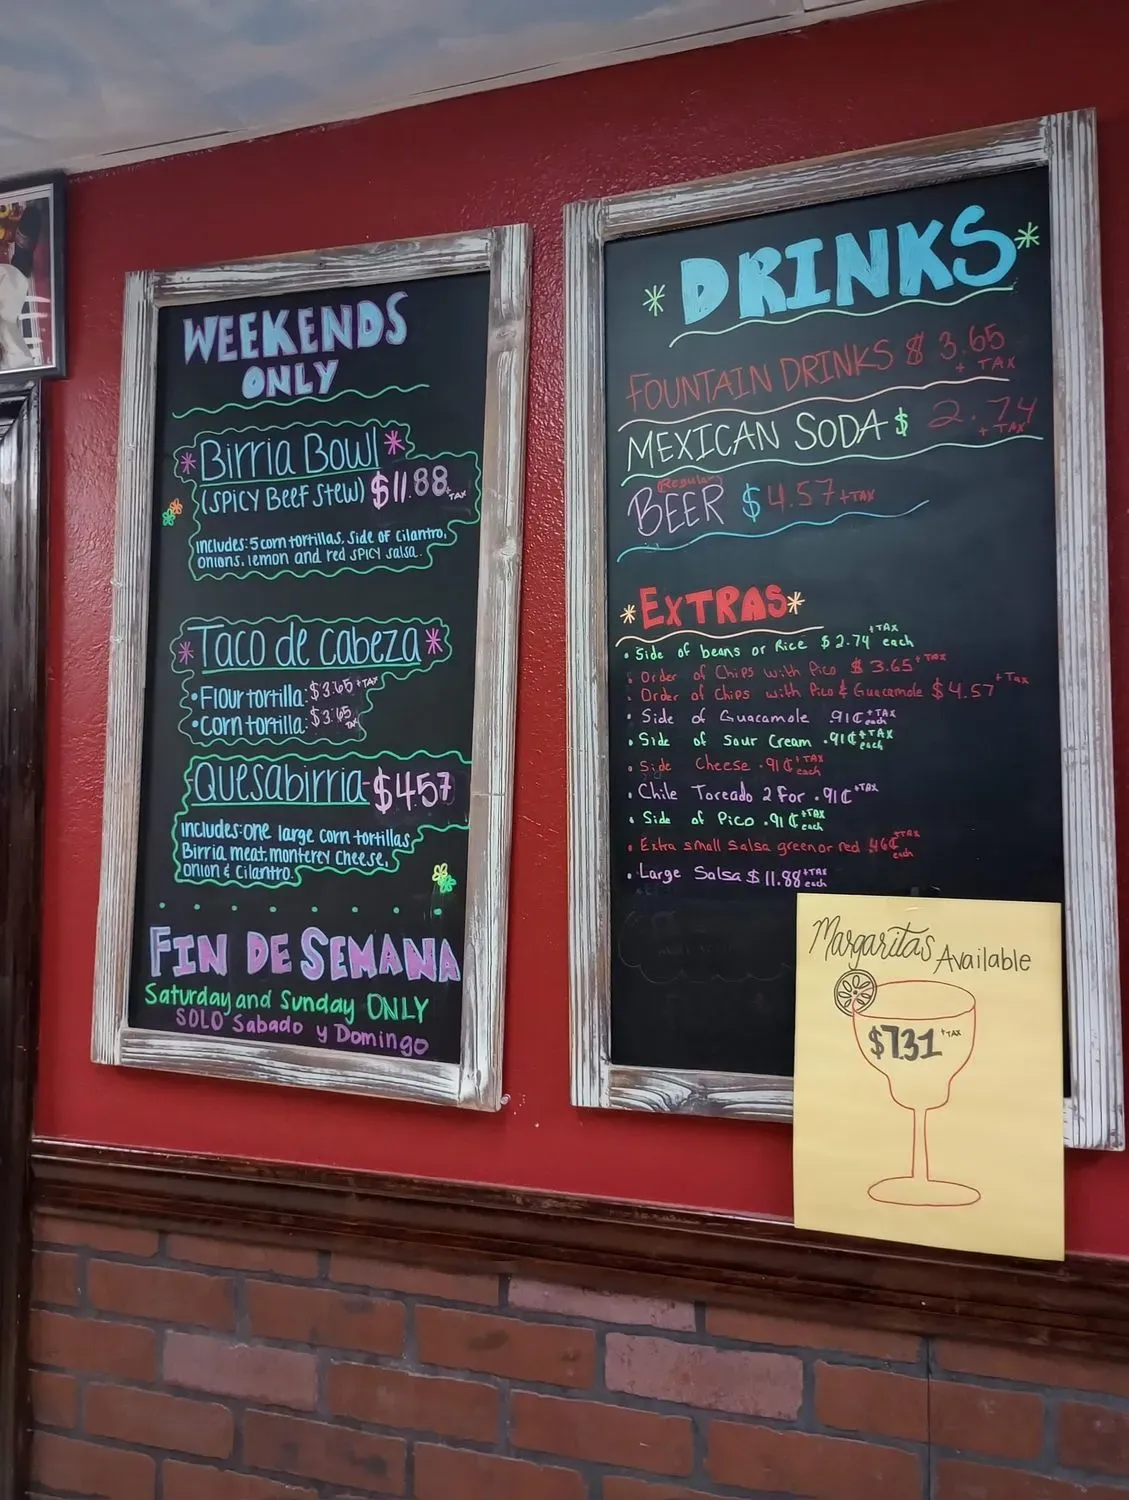 WEEKENDS
ONLY
Birria Bowl
(SPICY BEEF STEW) $11.88 +TAX
includes: 5 corn tortillas, side of cilantro,
onions, lemon and red SPICY salsa.
Taco de cabeza
• Flour tortilla: $3.65 +TAX
• Corn tortilla: $3.65 TAX
Quesabirria $4.57
includes: one large corn tortillas,
Birria meat, monterey cheese,
onion & cilantro.
FIN DE SEMANA
Saturday and Sunday ONLY
SOLO Sabado y Domingo
DRINKS
FOUNTAIN DRINKS $ 3.65 + TAX
MEXICAN SODA $ 2.74 + TAX
(Regular)
BEER $ 4.57 +TAX
EXTRAS
• Side of beans or Rice $ 2.74 +TAX each
• Order of Chips with Pico $ 3.65 +TAX
• Order of Chips with Pico & Guacamole $ 4.57 +TAX
• Side of Guacamole .91¢ +TAX each
• Side of Sour Cream .91¢ +TAX each
• Side Cheese .91¢ +TAX each
• Chile Toreado 2 For .91¢ +TAX
• Side of Pico .91¢ +TAX each
• Extra small salsa green or red .46¢ +TAX each
• Large Salsa $ 11.88 +TAX each
Margaritas Available
$7.31 +TAX